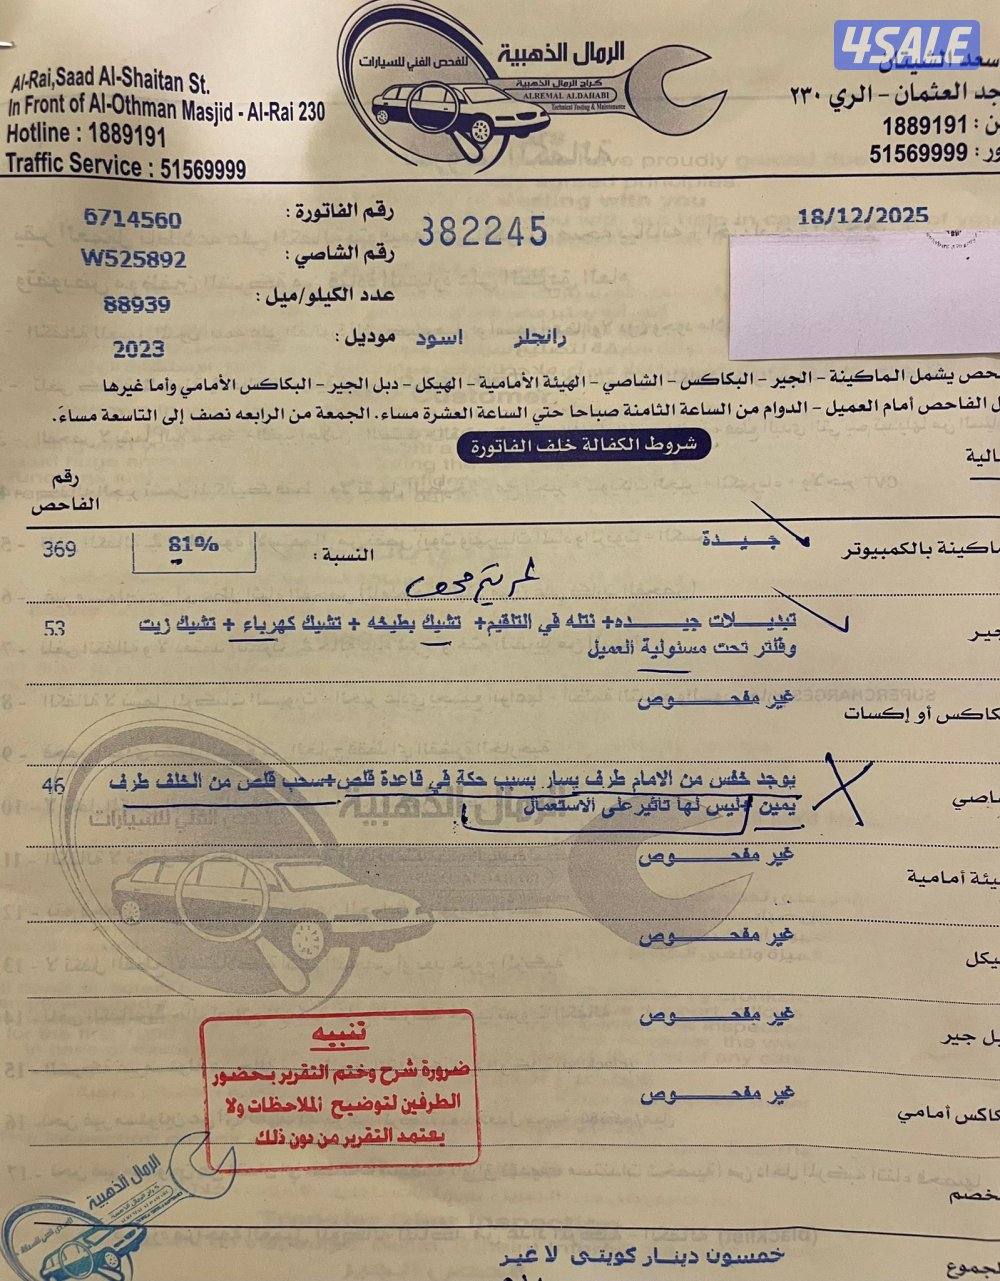 4SALE
Al-Rai,Saad Al-Shaitan St.
In Front of Al-Othman Masjid - Al-Rai 230
Hotline : 1889191
Traffic Service : 51569999
الرمال الذهبية
للفحص الفني للسيارات
كراج الرمال الذهبية
ALREMAL ALDAHABI
Technical Testing & Maintenance
سعد الشيقان
جد العثمان - الري ٢٣٠
ن : 1889191
ور : 51569999
18/12/2025
382245
رقم الفاتورة : 6714560
رقم الشاصي : W525892
عدد الكيلو/ميل : 88939
موديل : 2023
رانجلر اسود
حص يشمل الماكينة - الجير - البكاكس - الشاصي - الهيئة الأمامية - الهيكل - دبل الجير - البكاكس الأمامي وأما غيرها
ل الفاحص أمام العميل - الدوام من الساعة الثامنة صباحا حتي الساعة العشرة مساء. الجمعة من الرابعه نصف إلى التاسعة مساءً.
شروط الكفالة خلف الفاتورة
الية
رقم
الفاحص
ماكينة بالكمبيوتر
جـيـدة
النسبة :
81%
369
جير
تبديــــلات جيـــده+ نتله في التلقيم+ تشيك بطيخه + تشيك كهرباء + تشيك زيت
وفلتر تحت مسئولية العميل
53
كاكس أو إكسات
غير مفحـــــوص
اصي
يوجد خفس من الامام طرف يسار بسبب حكة في قاعدة قلص+سحب قلص من الخلف طرف
يمين +ليس لها تاثير على الاستعمال
46
يئة أمامية
غير مفحـــــوص
يكل
غير مفحـــــوص
بل جير
غير مفحـــــوص
كاكس أمامي
غير مفحـــــوص
خصم
تنبيه
ضرورة شرح وختم التقرير بحضور
الطرفين لتوضيح الملاحظات ولا
يعتمد التقرير من دون ذلك
الرمال الذهبية
جموع
خمسون دينار كويتى لا غير